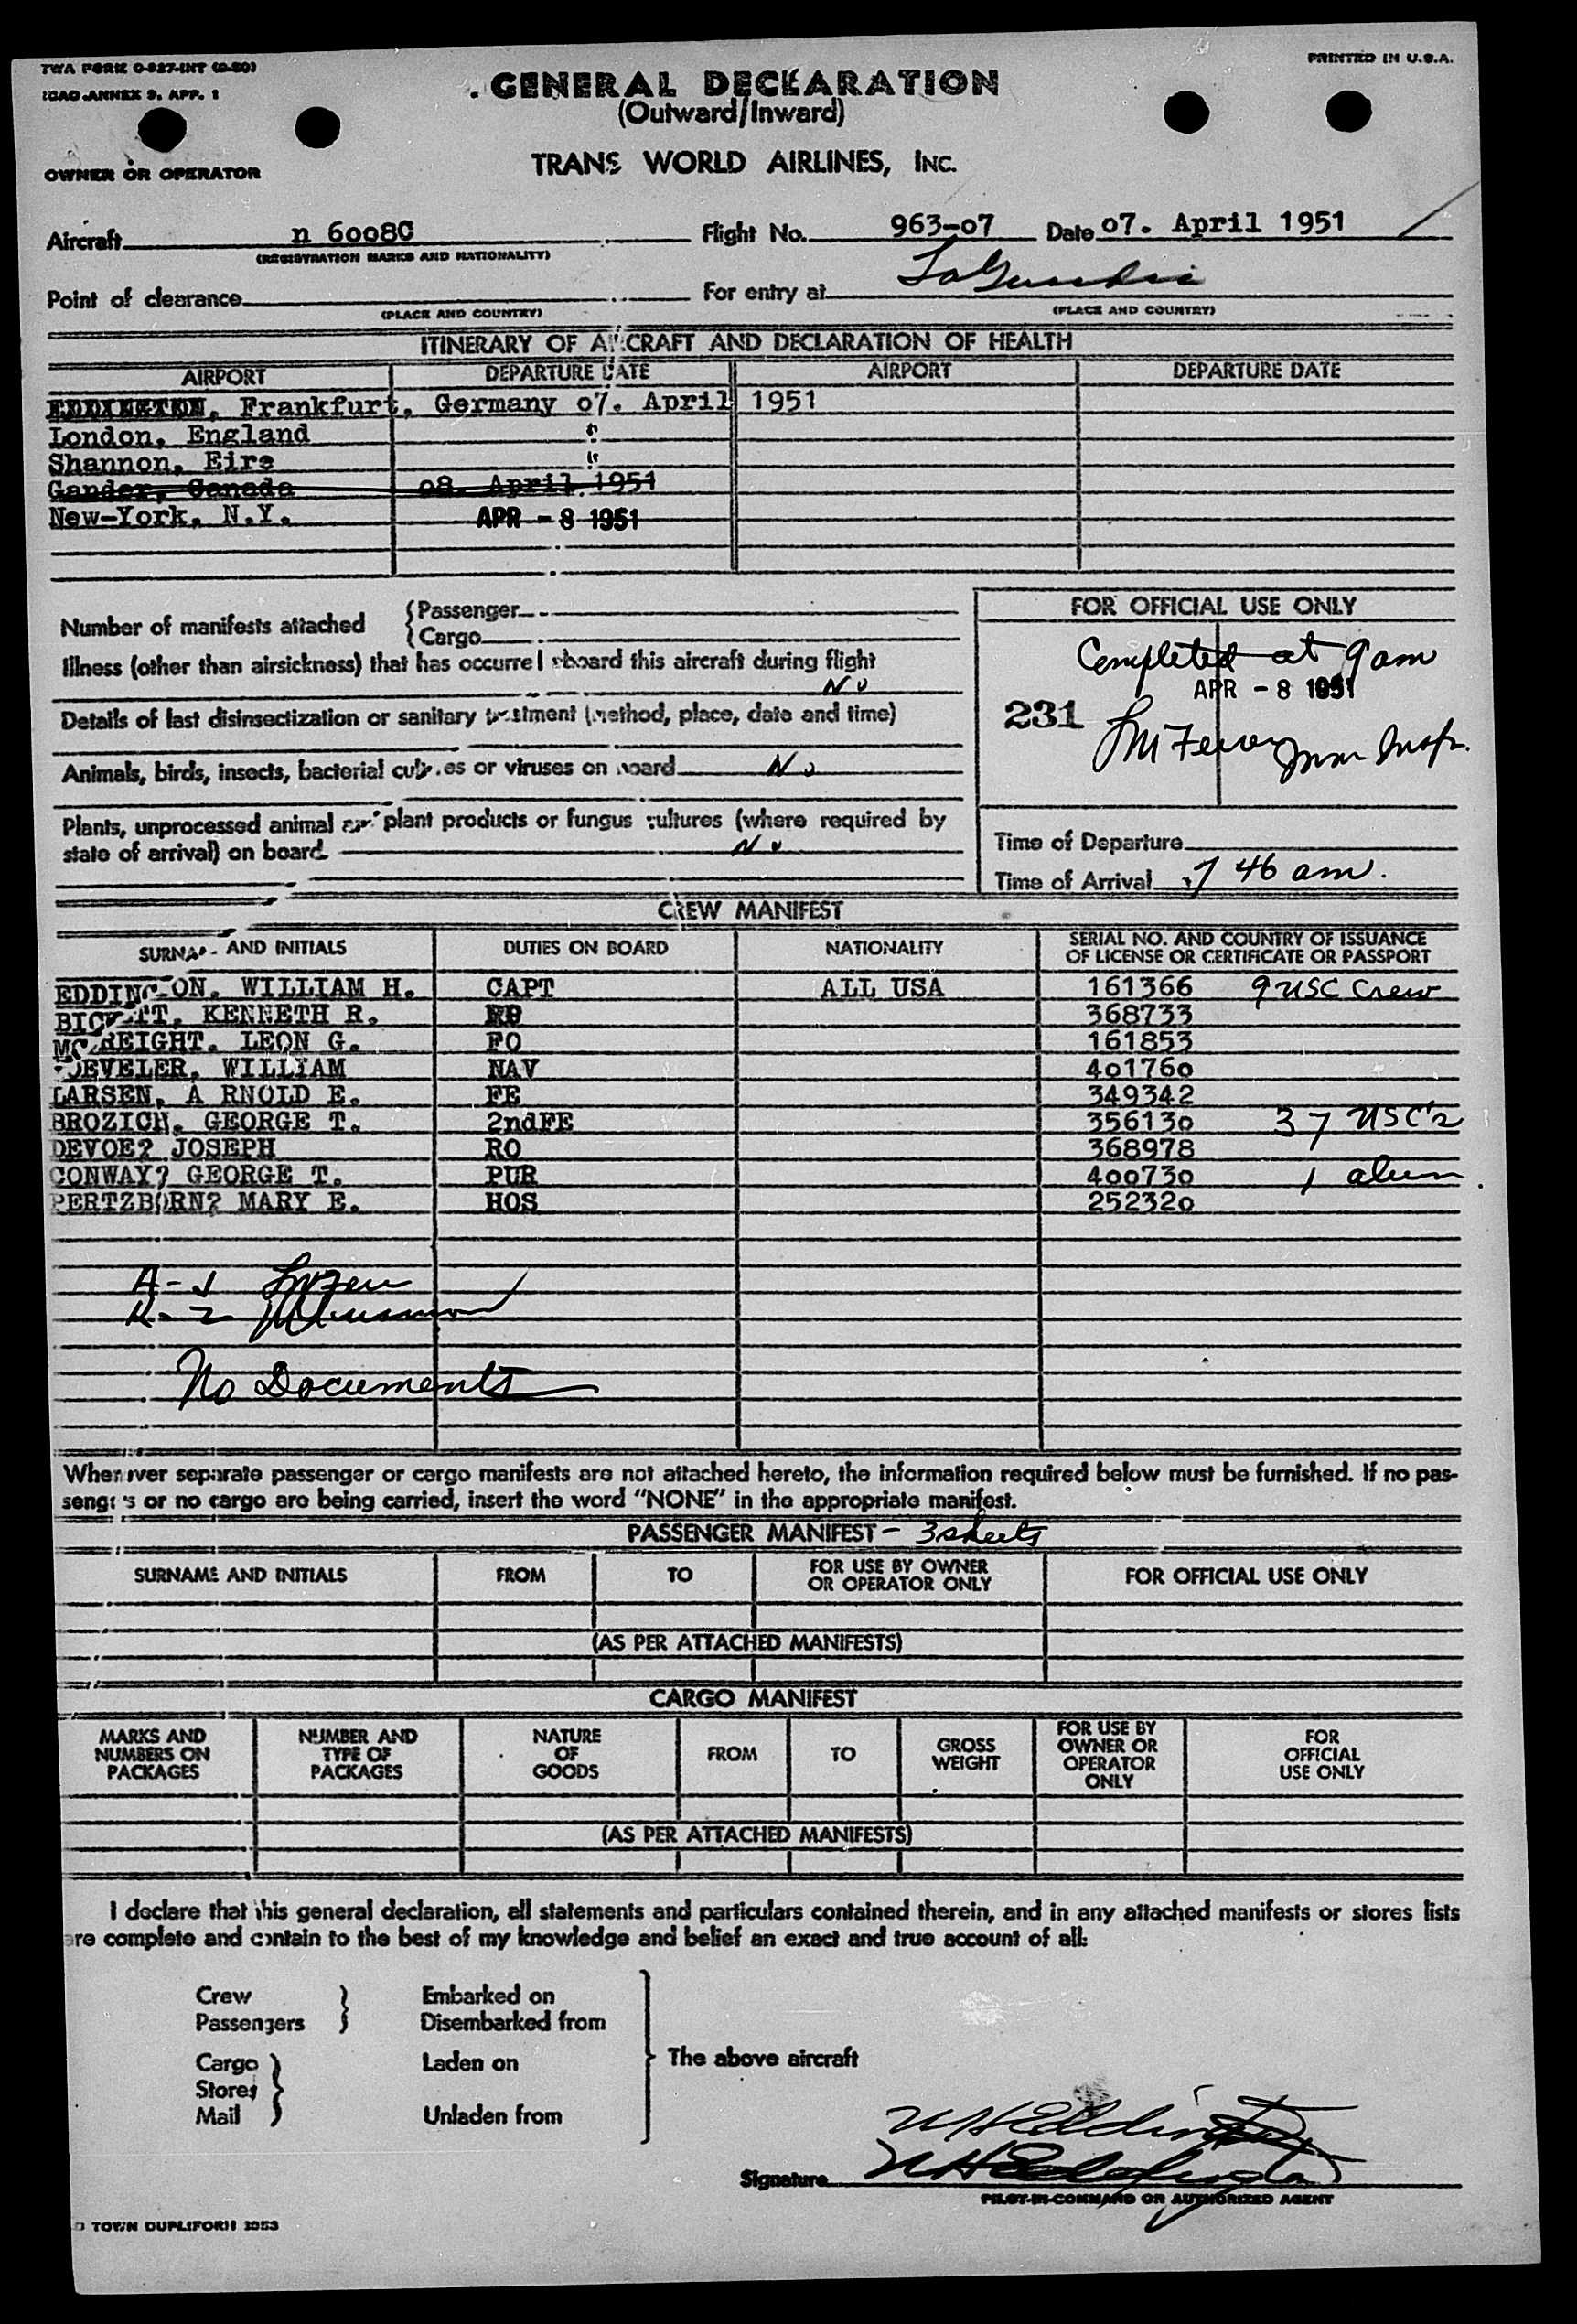 TWA FORM O-927-INT (9-50)
PRINTED IN U.S.A.
ICAO ANNEX 9, APP. 1
GENERAL DECLARATION
(Outward/Inward)
OWNER OR OPERATOR
TRANS WORLD AIRLINES, INC.
Aircraft n 6008C Flight No. 963-07 Date 07. April 1951
(REGISTRATION MARKS AND NATIONALITY)
Point of clearance For entry at LaGuardia
(PLACE AND COUNTRY) (PLACE AND COUNTRY)
ITINERARY OF AIRCRAFT AND DECLARATION OF HEALTH
AIRPORT DEPARTURE DATE AIRPORT DEPARTURE DATE
EDDINGTON, Frankfurt, Germany 07. April 1951
London, England "
Shannon, Eire "
Gander, Canada 08. April 1951
New-York, N.Y. APR - 8 1951
Number of manifests attached {Passenger
{Cargo
FOR OFFICIAL USE ONLY
Completed at 9 am
APR - 8 1951
231
Illness (other than airsickness) that has occurred aboard this aircraft during flight
No
Details of last disinsectization or sanitary treatment (method, place, date and time)
Animals, birds, insects, bacterial cultures or viruses on board No
Plants, unprocessed animal or plant products or fungus cultures (where required by
state of arrival) on board No
Time of Departure
Time of Arrival 7 46 am.
CREW MANIFEST
SURNAME AND INITIALS DUTIES ON BOARD NATIONALITY SERIAL NO. AND COUNTRY OF ISSUANCE OF LICENSE OR CERTIFICATE OR PASSPORT
EDDINGTON, WILLIAM H. CAPT ALL USA 161366 9 USC Crew
BICKETT, KENNETH R. 368733
MCREIGHT. LEON G. FO 161853
WILLIAM NAV 401760
LARSEN, A RNOLD E. FE 349342
BROZICH, GEORGE T. 2ndFE 356130 37 USC's
DEVOE? JOSEPH RO 368978
CONWAY? GEORGE T. PUR 400730 1 alien
PERTZBORN? MARY E. HOS 252320
No Documents
Whenever separate passenger or cargo manifests are not attached hereto, the information required below must be furnished. If no pas-
sengers or no cargo are being carried, insert the word "NONE" in the appropriate manifest.
PASSENGER MANIFEST - 3 sheets
SURNAME AND INITIALS FROM TO FOR USE BY OWNER OR OPERATOR ONLY FOR OFFICIAL USE ONLY
(AS PER ATTACHED MANIFESTS)
CARGO MANIFEST
MARKS AND NUMBERS ON PACKAGES NUMBER AND TYPE OF PACKAGES NATURE OF GOODS FROM TO GROSS WEIGHT FOR USE BY OWNER OR OPERATOR ONLY FOR OFFICIAL USE ONLY
(AS PER ATTACHED MANIFESTS)
I declare that this general declaration, all statements and particulars contained therein, and in any attached manifests or stores lists
are complete and contain to the best of my knowledge and belief an exact and true account of all:
Crew Embarked on
Passengers Disembarked from
Cargo Laden on The above aircraft
Stores
Mail Unladen from
WH Eddington
Signature WH Eddington
PILOT-IN-COMMAND OR AUTHORIZED AGENT
TOWN DUPLIFORM 1053